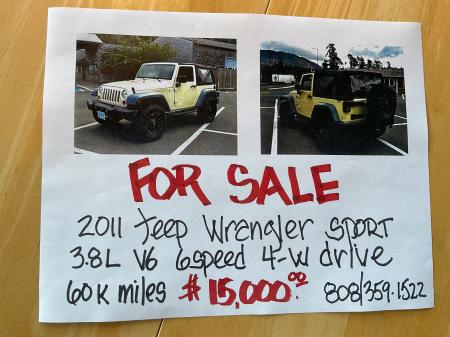 FOR SALE
2011 Jeep Wrangler SPORT
3.8L V6 6speed 4-W drive
60K miles $15,000.00 808/359.1522